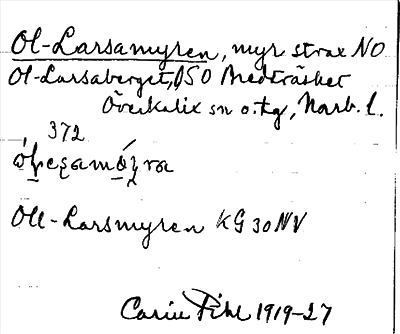 Ol-Larsamyren, myr strax NO
Ol-Larsaberget, OSO Medträsket
Överkalix sn o. tg, Norrb. l.
372
Oll-Larsmyren KG 30 NV
Carin Pihl 1919-27